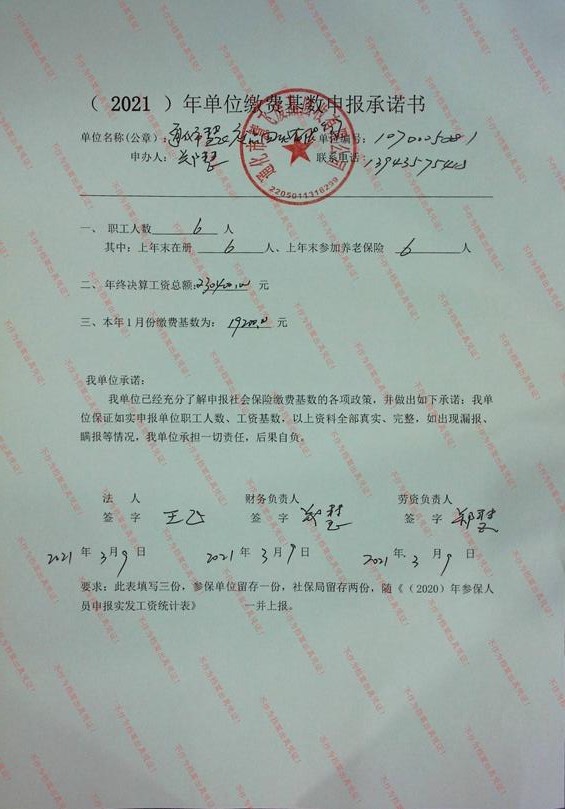 （ 2021 ）年单位缴费基数申报承诺书
单位名称(公章)： 单位编号：
申办人： 郑慧 联系电话：13943575403
2205011316239
一、 职工人数 6 人
其中：上年末在册 6 人、上年末参加养老保险 6 人
二、年终决算工资总额:230400.00 元
三、本年1月份缴费基数为： 19200.0 元
我单位承诺：
我单位已经充分了解申报社会保险缴费基数的各项政策，并做出如下承诺：我单
位保证如实申报单位职工人数、工资基数，以上资料全部真实、完整，如出现漏报、
瞒报等情况，我单位承担一切责任，后果自负。
法 人 财务负责人 劳资负责人
签 字 王飞 签 字 郑慧 签 字 郑慧
2021 年 3 月 9 日 2021 年 3 月 9 日 2021 年 3 月 9 日
要求：此表填写三份，参保单位留存一份，社保局留存两份，随《（2020）年参保人
员申报实发工资统计表》 一并上报。